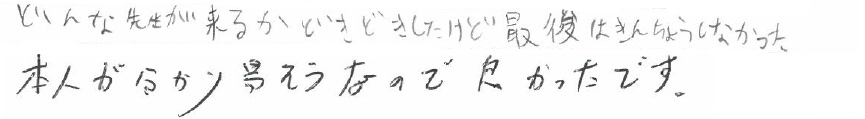 どんな先生が来るかどきどきしたけど最後はきんちょうしなかった
本人が分かり易そうなので良かったです。